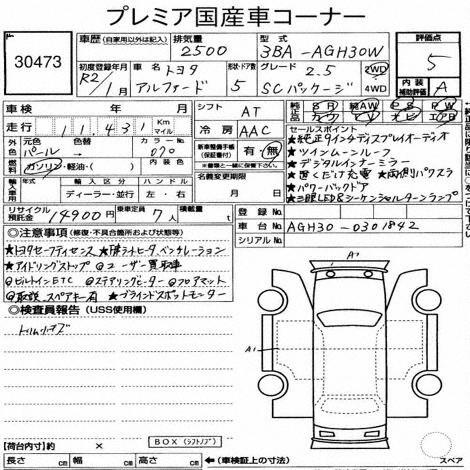 プレミア国産車コーナー
30473
車歴 (自家用以外は記入)
排気量 2500
型式 3BA-AGH30W
評価点 5
初度登録年月 R2/1月
車名 トヨタ アルファード
形状・ドア数 5
グレード 2.5 SCパッケージ
2WD 4WD
内装補助評価 A
車検 年 月
シフト AT
走行 11,431 Km マイル
冷房 AAC
外色 元色 パール 色替 → カラーNo. 070
内色
燃料 ガソリン・軽油・( )
新車整備手帳(保証書付) 有・無
輸入年式 年 輸入区分 ディーラー・並行 ハンドル 左・右
名義変更期限 月 日
純正 SR 純正 AW PS PW
カワ TV ナビ エアB
セールスポイント
★純正9インチディスプレイオーディオ
★ツインムーンルーフ
★デジタルインナーミラー
★置くだけ充電 ★両側パワスラ
★パワーバックドア
★三眼LED&シーケンシャルターンランプ
リサイクル預託金 14900円
乗車定員 7人
積載量 t
登録No.
車台No. AGH30-0301842
シリアルNo.
◎注意事項 (修復・不具合・要交換箇所)
★トヨタセーフティセンス ★席シートヒーター、ベンチレーション
★アイドリングストップ ◎ユーザー買取車
◎ビルトインETC ◎ステアリングヒーター ◎フロアマット
◎取説、スペアキー有 ★ブラインドスポットモニター
◎検査員報告 (USS使用欄)
A1
A1
【荷台内寸約】 ×
BOX (シフトノブ)
長さ cm 幅 cm 高さ cm ←(車検証上の寸法)
スペア